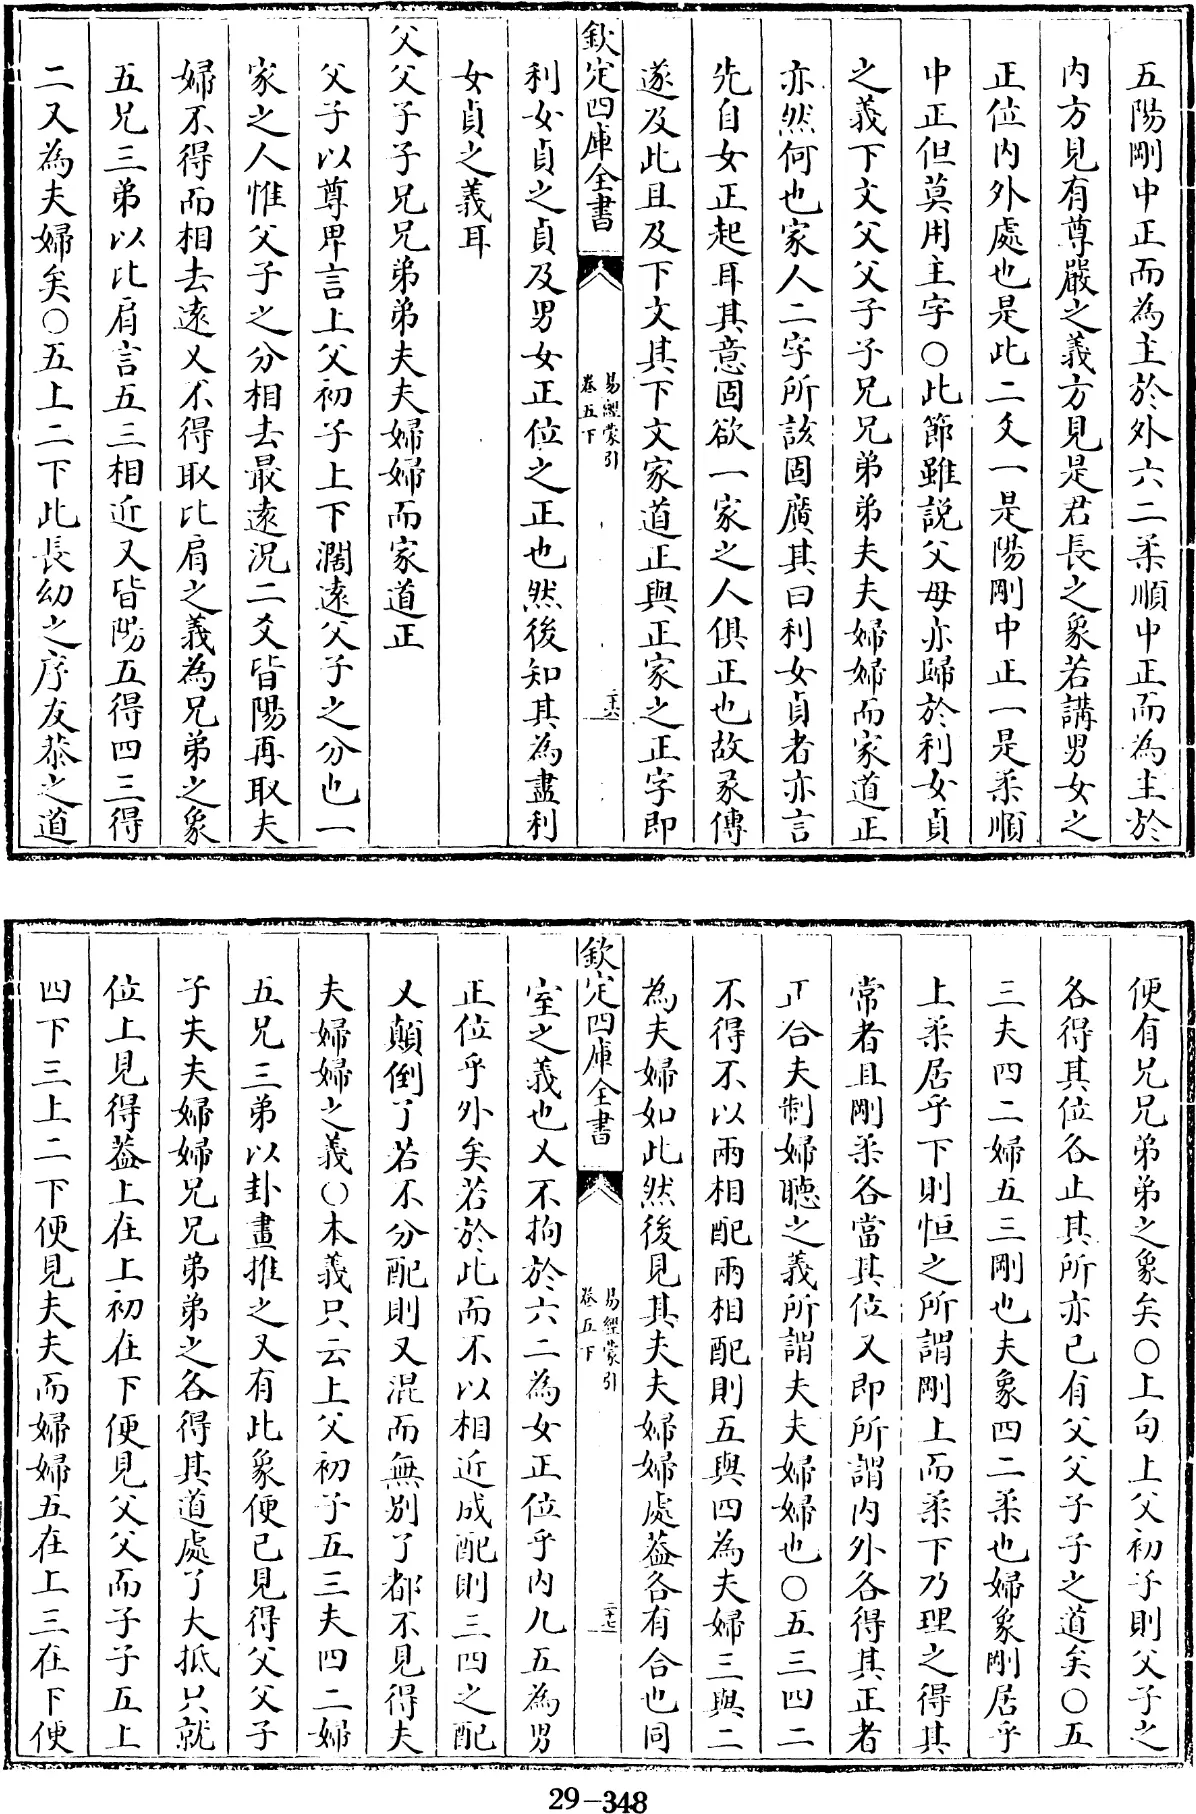 五陽剛中正而為主於外六二柔順中正而為主於
内方見有尊嚴之義方見是君長之象若講男女之
正位内外處也是此二爻一是陽剛中正一是柔順
中正但莫用主字○此節雖説父母亦歸於利女貞
之義下文父父子子兄兄弟弟夫夫婦婦而家道正
亦然何也家人二字所該固廣其曰利女貞者亦言
先自女正起耳其意固欲一家之人俱正也故彖傳
遂及此且及下文其下文家道正與正家之正字即
欽定四庫全書
易經蒙引
卷五下
二十六
利女貞之貞及男女正位之正也然後知其為盡利
女貞之義耳
父父子子兄兄弟弟夫夫婦婦而家道正
父子以尊卑言上父初子上下濶逺父子之分也一
家之人惟父子之分相去最逺況二爻皆陽再取夫
婦不得而相去逺又不得取比肩之義為兄弟之象
五兄三弟以比肩言五三相近又皆陽五得四三得
二又為夫婦矣○五上二下此長幼之序友恭之道
便有兄兄弟弟之象矣○上句上父初子則父子之
各得其位各止其所亦已有父父子子之道矣○五
三夫四二婦五三剛也夫象四二柔也婦象剛居乎
上柔居乎下則恒之所謂剛上而柔下乃理之得其
常者且剛柔各當其位又即所謂内外各得其正者
正合夫制婦聴之義所謂夫夫婦婦也○五三四二
不得不以兩相配兩相配則五與四為夫婦三與二
為夫婦如此然後見其夫夫婦婦處葢各有合也同
欽定四庫全書
易經蒙引
卷五下
二十七
室之義也又不拘於六二為女正位乎内九五為男
正位乎外矣若於此而不以相近成配則三四之配
又顛倒了若不分配則又混而無別了都不見得夫
夫婦婦之義○本義只云上父初子五三夫四二婦
五兄三弟以卦畫推之又有此象便已見得父父子
子夫夫婦婦兄兄弟弟之各得其道處了大抵只就
位上見得葢上在上初在下便見父父而子子五上
四下三上二下便見夫夫而婦婦五在上三在下便
29-348